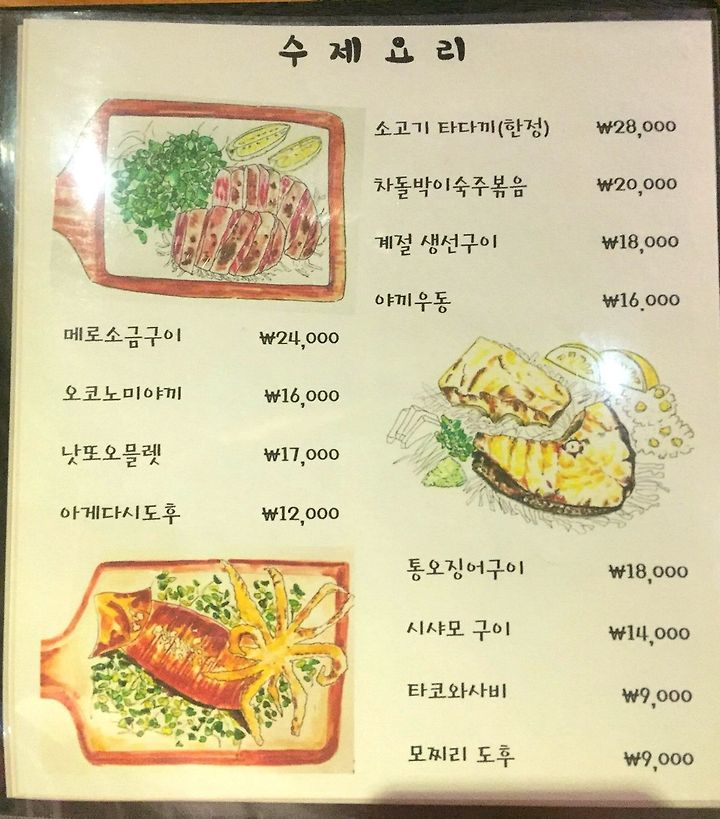 수제요리
소고기 타다끼(한정) ₩28,000
차돌박이숙주볶음 ₩20,000
계절 생선구이 ₩18,000
야끼우동 ₩16.000
메로소금구이 ₩24,000
오코노미야끼 ₩16,000
낫또오믈렛 ₩17,000
아게다시도후 ₩12,000
통오징어구이 ₩18,000
시샤모 구이 ₩14,000
타코와사비 ₩9,000
모찌리 도후 ₩9,000